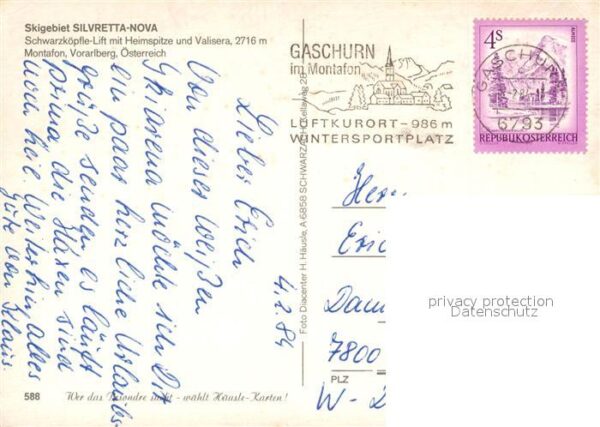 Skigebiet SILVRETTA-NOVA
Schwarzköpfle-Lift mit Heimspitze und Valisera, 2716 m
Montafon, Vorarlberg, Österreich
4.2.84
Lieber Erich
Von dieser weißen
Skiarena möchte ich Dir
ein paar herzliche Urlaubs-
grüße senden es läuft
prima die Haxen sind
noch heil. Weiterhin alles
Gute von Klaus.
588
Wer das Besondre sucht - wählt Häusle-Karten!
Foto Diacenter H. Häusle, A-6858 SCHWARZACH
GASCHURN
im Montafon
LUFTKURORT-986m
WINTERSPORTPLATZ
GASCHURN
6793
4s
REPUBLIK ÖSTERREICH
Herr
Eric
Dam
7800
PLZ
W-
privacy protection
Datenschutz